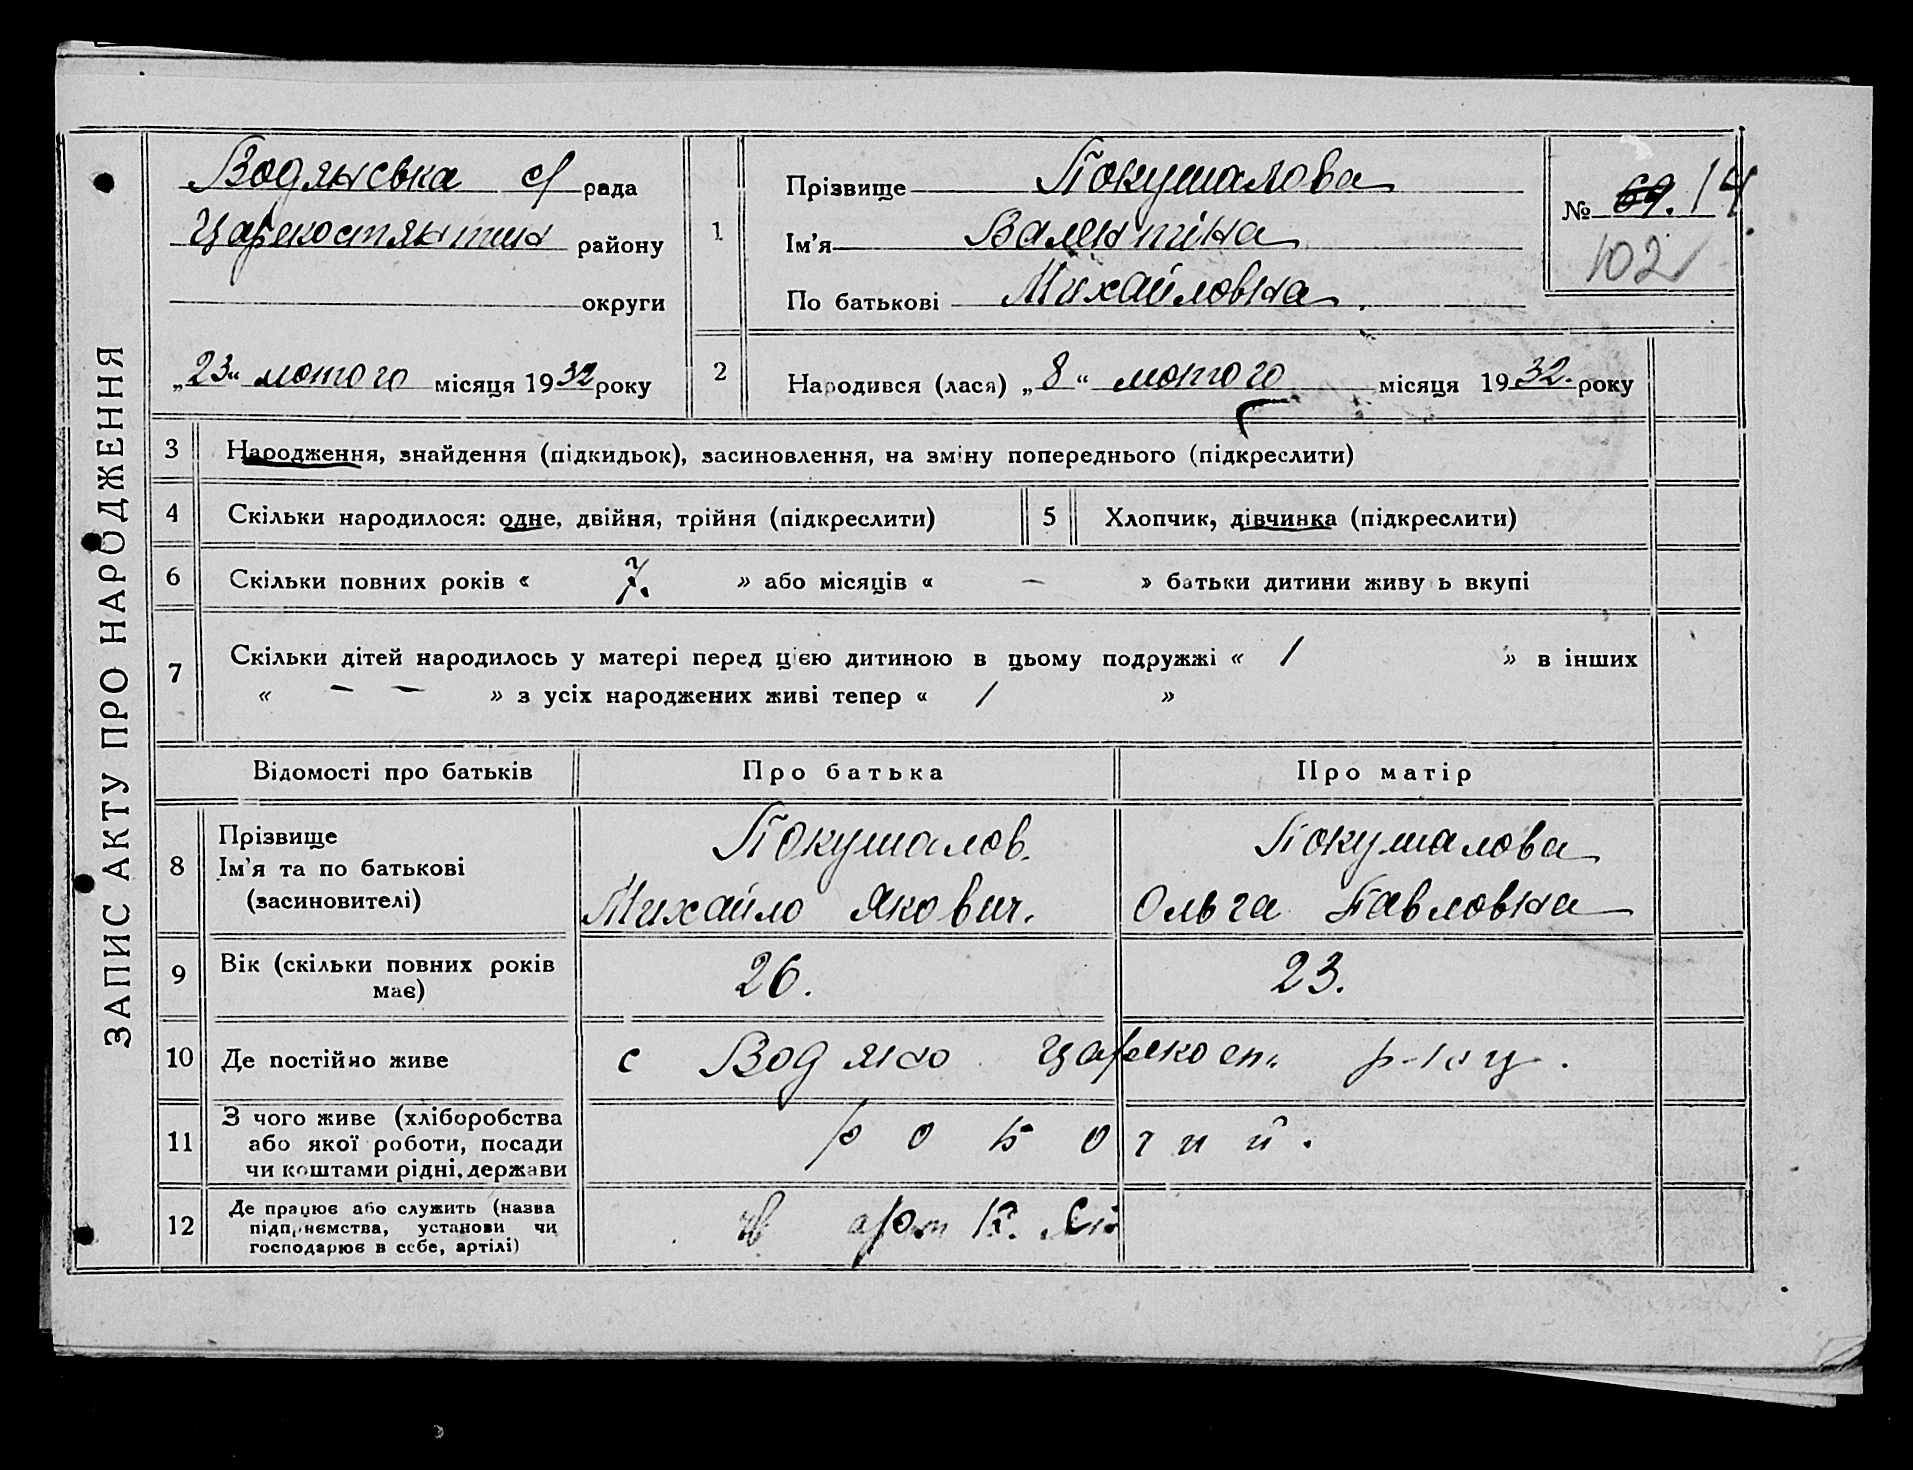 ЗАПИС АКТУ ПРО НАРОДЖЕННЯ
Водянська с/ рада
району
округи
„23“ лютого місяця 1932 року
1
Прізвище Покушалова
Ім'я Валентіна
По батькові Михайловна
№ 69. 14
102
2
Народився (лася) „8“ лютого місяця 1932. року
3 Народження, знайдення (підкидьок), засиновлення, на зміну попереднього (підкреслити)
4 Скільки народилося: одне, двійня, трійня (підкреслити)
5 Хлопчик, дівчинка (підкреслити)
6 Скільки повних років « 7. » або місяців « – » батьки дитини живуть вкупі
7 Скільки дітей народилось у матері перед цією дитиною в цьому подружжі « 1 » в інших
« – – » з усіх народжених живі тепер « 1 »
Відомості про батьків Про батька Про матір
8 Прізвище
Ім'я та по батькові
(засиновителі)
Покушалов.
Михайло Якович.
Покушалова
Ольга Павловна
9 Вік (скільки повних років
має)
26. 23.
10 Де постійно живе
с Водяно Царекост. р-ну.
11 З чого живе (хліборобства
або якої роботи, посади
чи коштами рідні, держави
робочий.
12 Де працює або служить (назва
підприємства, установи чи
господарює в себе, артілі)
в арт